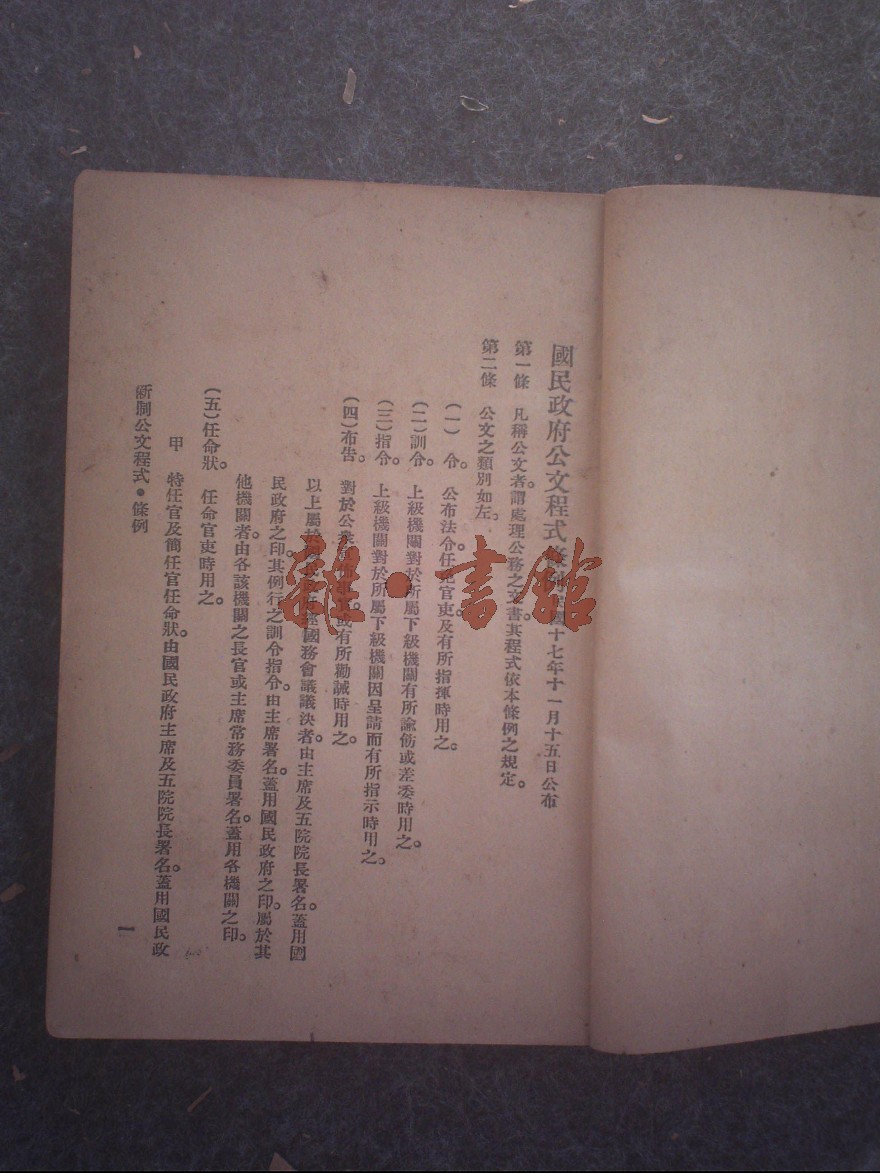 國民政府公文程式條例 民國十七年十一月十五日公布
第一條 凡稱公文者。謂處理公務之文書。其程式依本條例之規定。
第二條 公文之類別如左。
(一) 令。 公布法令任免官吏及有所指揮時用之。
(二)訓令。 上級機關對於所屬下級機關有所諭飭或差委時用之。
(三)指令。 上級機關對於所屬下級機關因呈請而有所指示時用之。
(四)布告。 對於公衆 或有所勸誡時用之。
以上屬於 國務會議議決者。由主席及五院院長署名。蓋用國
民政府之印。其例行之訓令指令。由主席署名。蓋用國民政府之印。屬於其
他機關者。由各該機關之長官或主席常務委員署名。蓋用各機關之印。
(五)任命狀。 任命官吏時用之。
甲 特任官及簡任官任命狀。由國民政府主席及五院院長署名。蓋用國民政
新制公文程式•條例
一
雜•書館